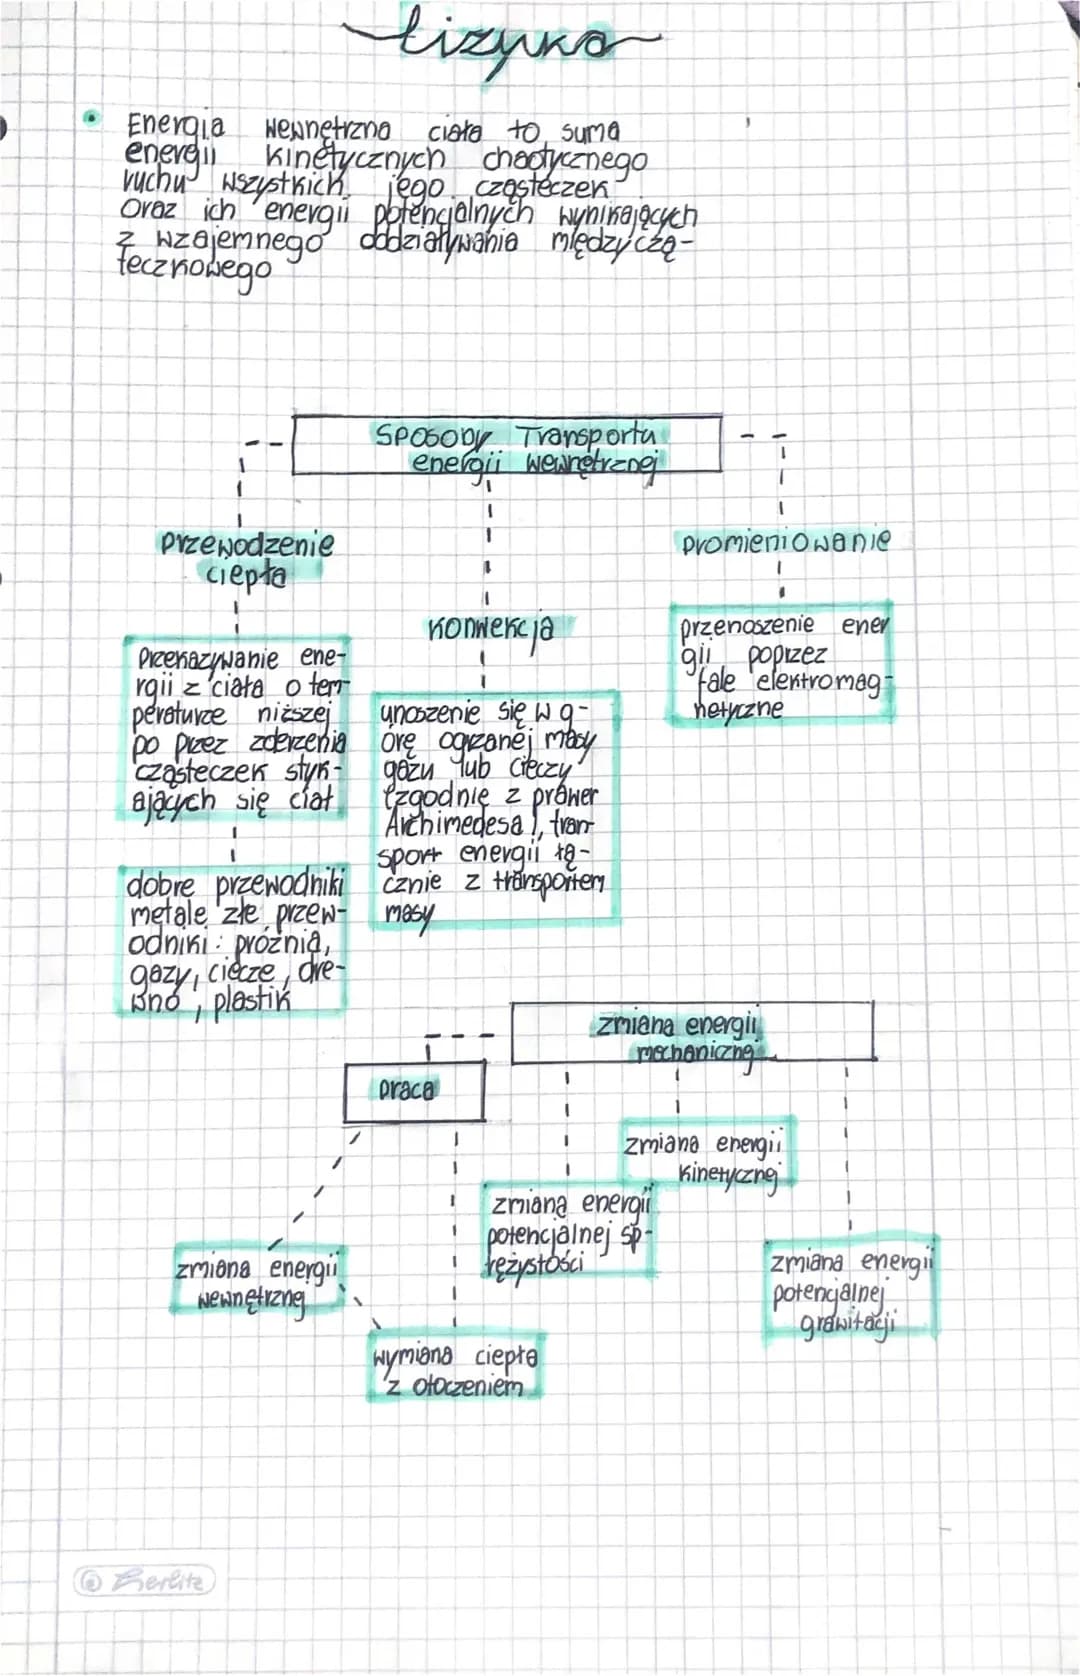 fizyka
Energia wewnętrzna ciała to suma
energii kinetycznych chaotycznego
ruchu wszystkich jego cząsteczek
Oraz ich energii potencjalnych wynikających
z wzajemnego oddziaływania międzyczą-
teczkowego
SPOSOBY Transportu
energii wewnętrznej
przewodzenie
ciepła
przekazywanie ene-
rgii z ciała o tem-
peraturze niższej
po przez zderzenia
cząsteczek styk-
ających się ciał
dobre przewodniki
metale złe przew-
odniki: próżnia,
gazy, ciecze, dre-
wno, plastik
konwekcja
unoszenie się w g-
órę ogrzanej masy
gazu lub cieczy
(zgodnie z prawem
Archimedesa), tran-
sport energii łą-
cznie z transportem
masy
promieniowanie
przenoszenie ener
gii poprzez
fale elektromag-
netyczne
zmiana energii
mechanicznej
praca
zmiana energii
kinetycznej
zmiana energii
potencjalnej sp-
rężystości
zmiana energii
wewnętrznej
zmiana energii
potencjalnej
grawitacji
wymiana ciepła
z otoczeniem
Herlitz